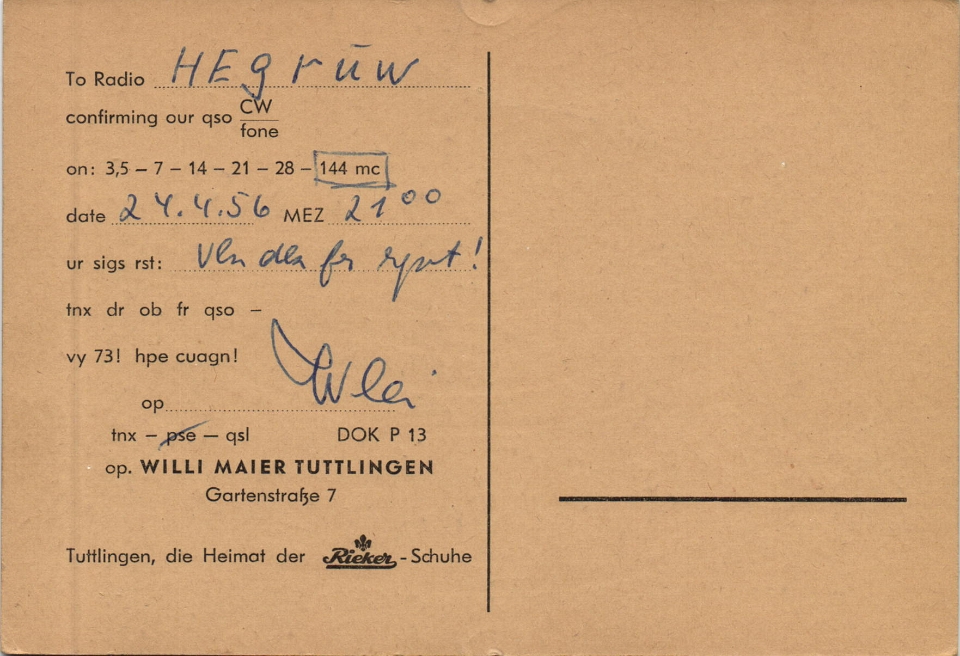 To Radio HE9rüw
confirming our qso CW
fone
on: 3,5 – 7 – 14 – 21 – 28 – 144 mc
date 24.4.56 MEZ 21⁰⁰
ur sigs rst: !
tnx dr ob fr qso –
vy 73! hpe cuagn!
op Willi
tnx – pse – qsl DOK P 13
op. WILLI MAIER TUTTLINGEN
Gartenstraße 7
Tuttlingen, die Heimat der Rieker - Schuhe